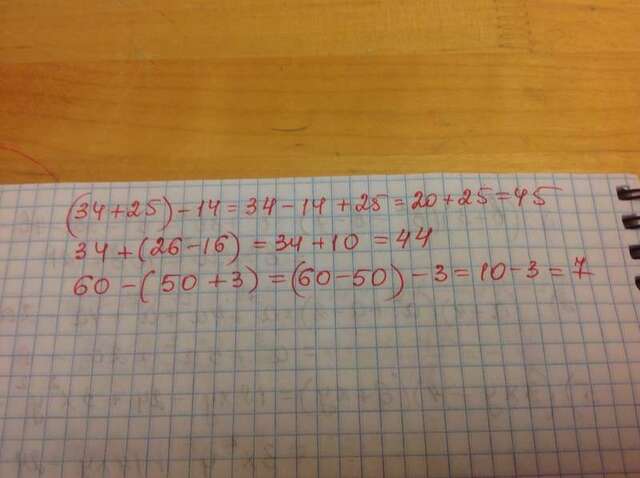 (34+25)-14=34-14+25=20+25=45
34+(26-16)=34+10=44
60-(50+3)=(60-50)-3=10-3=7